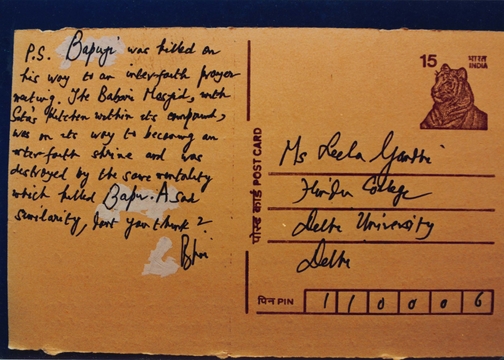 P.S. Bapuji was killed on
his way to an interfaith prayer
meeting. The Babari Masjid, with
Sitas Kitchen within its compound,
was on its way to becoming an
interfaith shrine and was
destroyed by the same mentality
which killed Bapu. A sad
similarity, don't you think?
15
भारत
INDIA
पोस्ट कार्ड POST CARD
Ms Leela Gandhi
Hindu College
Delhi University
Delhi
पिन PIN 110006